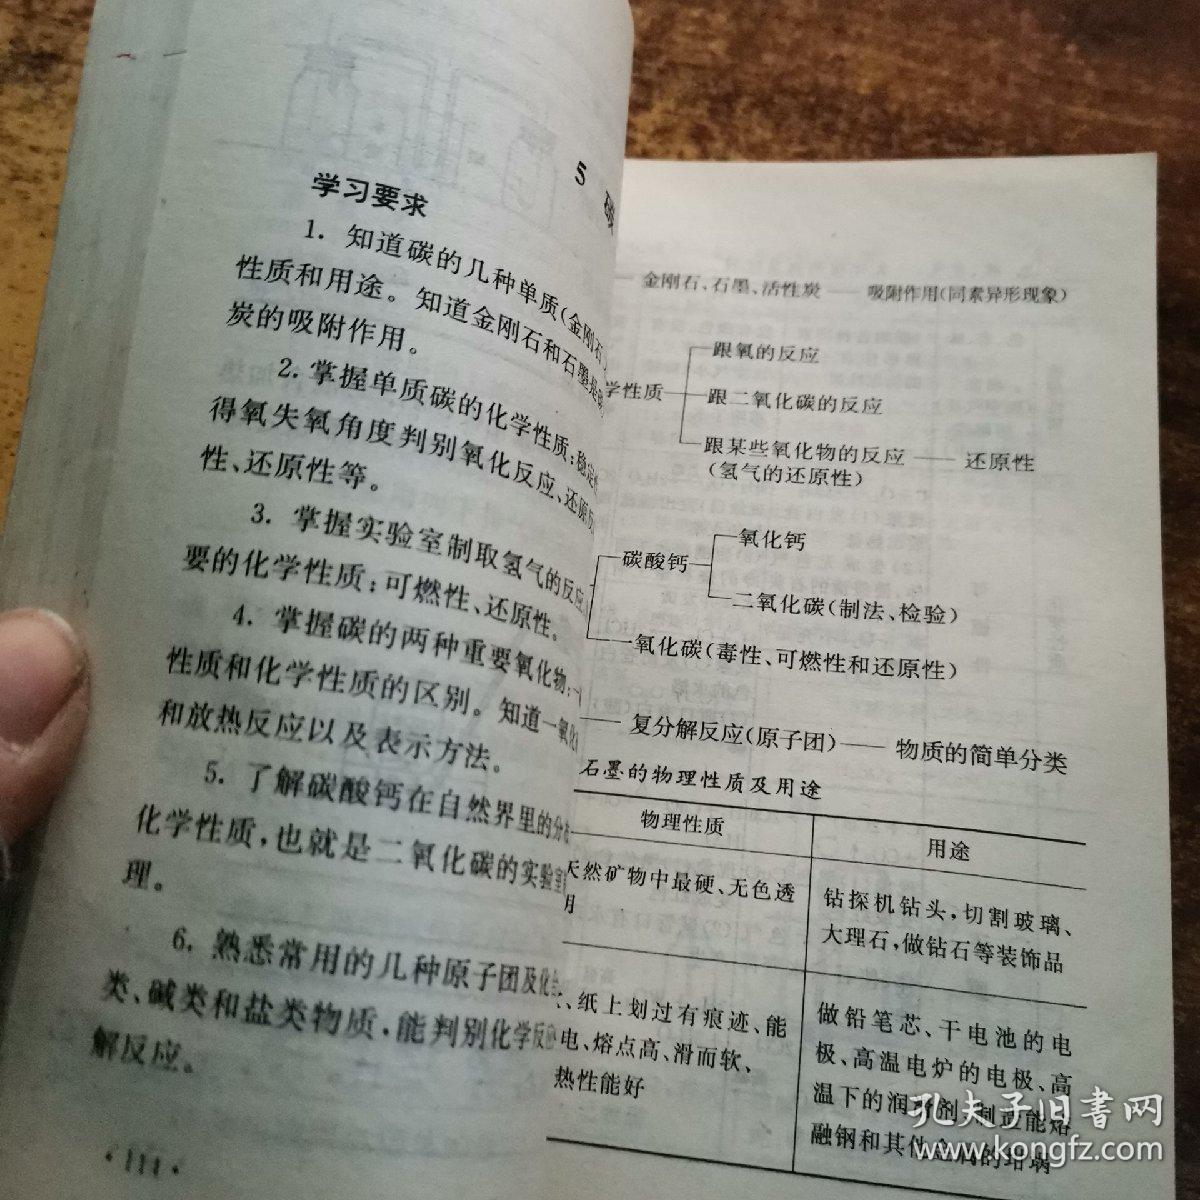 5 碳
学习要求
1. 知道碳的几种单质(金刚石
性质和用途。知道金刚石和石墨是
炭的吸附作用。
2. 掌握单质碳的化学性质:稳定
得氧失氧角度判别氧化反应、还原反
性、还原性等。
3. 掌握实验室制取氢气的反应
要的化学性质:可燃性、还原性。
4. 掌握碳的两种重要氧化物:一
性质和化学性质的区别。知道一氧化
和放热反应以及表示方法。
5. 了解碳酸钙在自然界里的分
化学性质,也就是二氧化碳的实验室
理。
6. 熟悉常用的几种原子团及化
类、碱类和盐类物质,能判别化学反应
解反应。
·111·
金刚石、石墨、活性炭——吸附作用(同素异形现象)
跟氧的反应
学性质
跟二氧化碳的反应
跟某些氧化物的反应——还原性
(氢气的还原性)
氧化钙
碳酸钙
二氧化碳(制法、检验)
一氧化碳(毒性、可燃性和还原性)
——复分解反应(原子团)——物质的简单分类
石墨的物理性质及用途
物理性质 用途
天然矿物中最硬、无色透 钻探机钻头,切割玻璃、
明 大理石,做钻石等装饰品
、纸上划过有痕迹、能 做铅笔芯、干电池的电
电、熔点高、滑而软、 极、高温电炉的电极、高
热性能好 温下的润滑剂,制造能熔
融钢和其他金属的坩埚
孔夫子旧书网
www.kongfz.com